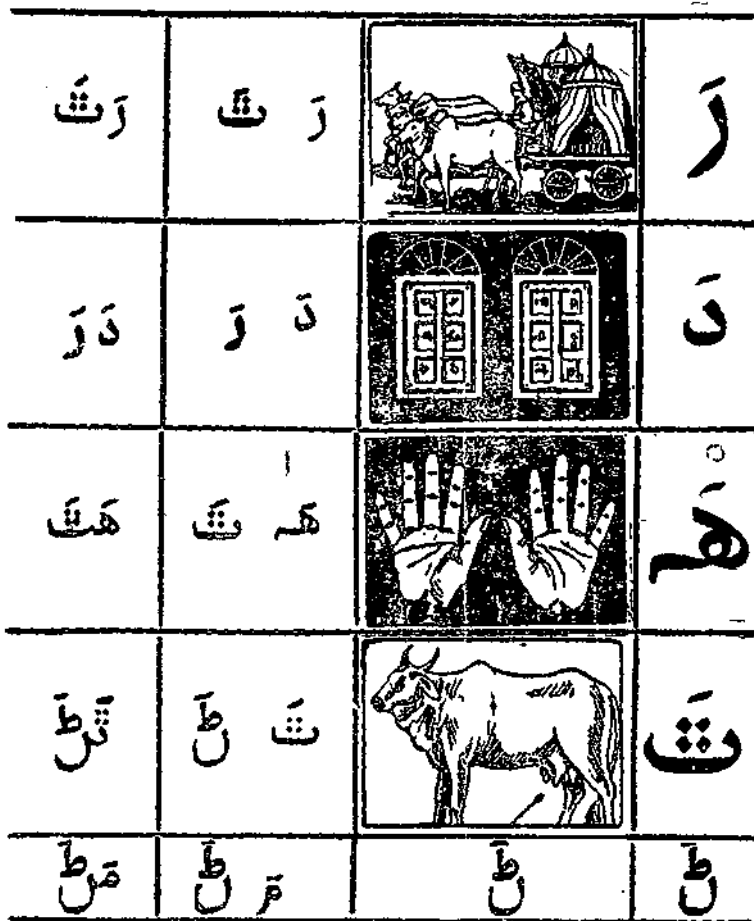 رَ رَ ٿَ رَٿَ
دَ دَ رَ دَرَ
هَ هَ ٿَ هَٿَ
ٿَ ٿَ ڻَ ٿَڻَ
ڻَ ڻَ مَ ڻَ مَڻَ